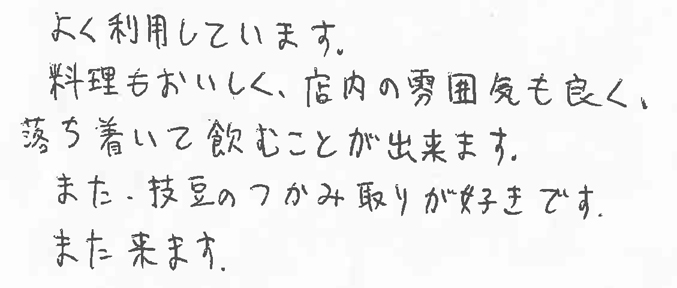 よく利用しています。
料理もおいしく、店内の雰囲気も良く、
落ち着いて飲むことが出来ます。
また、枝豆のつかみ取りが好きです。
また来ます。